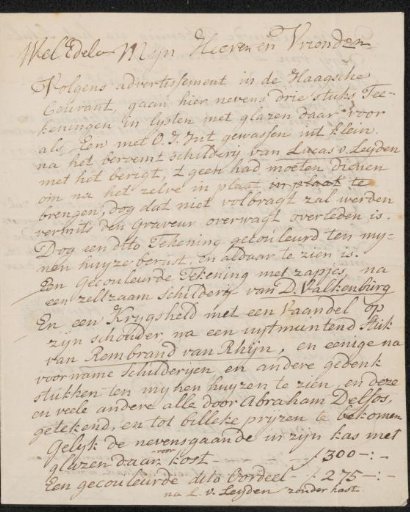 Wel Edele Mijn Heeren en Vrienden
Volgens advertissement in de Haagsche
Courant, gaan hier nevens drie stuks Tee-
keningen in lijsten met glazen daar voor
als Een met O. I. Int gewassen uit klein
na het beroemt schilderij van Lucas v. Leyden
met het berigt, 't geen had moeten dienen
om na het zelve in plaat in plaat te
brengen, dog dat niet volbragt zal werden
vermits den Graveur overwagt overleden is.
Dog een dito Tekening gecouleurd ten my-
nen huyze berust, en aldaar te zien is.
Een Gecouleurde Tekening met zapjes, na
een zeltzaam schilderij van D. Valkenburg
En een Krygsheld met een Vaandel op
zijn schouder na een uytmuntend stuk
van Rembrand van Rhijn, en eenige na
voorname schilderyen, en andere gedenk
stukken ten mynen huyzen te zien, en deze
en veele andere alle door Abraham Delfos,
getekend, en tot billeke pryzen te bekomen
Gelijk de nevensgaande in zyn kas met
glazen daar voor kost - - ƒ 300 -:-
Een gecouleurde dito Oordeel - ƒ 275 -:-
na L. v. Leyden zonder kast